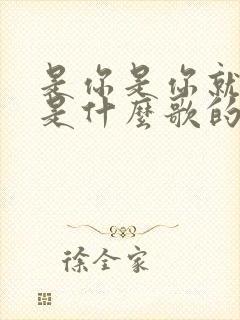 是你是你就
是什麼歌的
徐全家